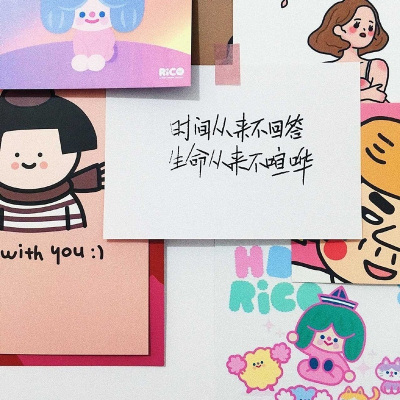 RiCO
时间从来不回答
生命从来不喧哗
with you :)
RiCO